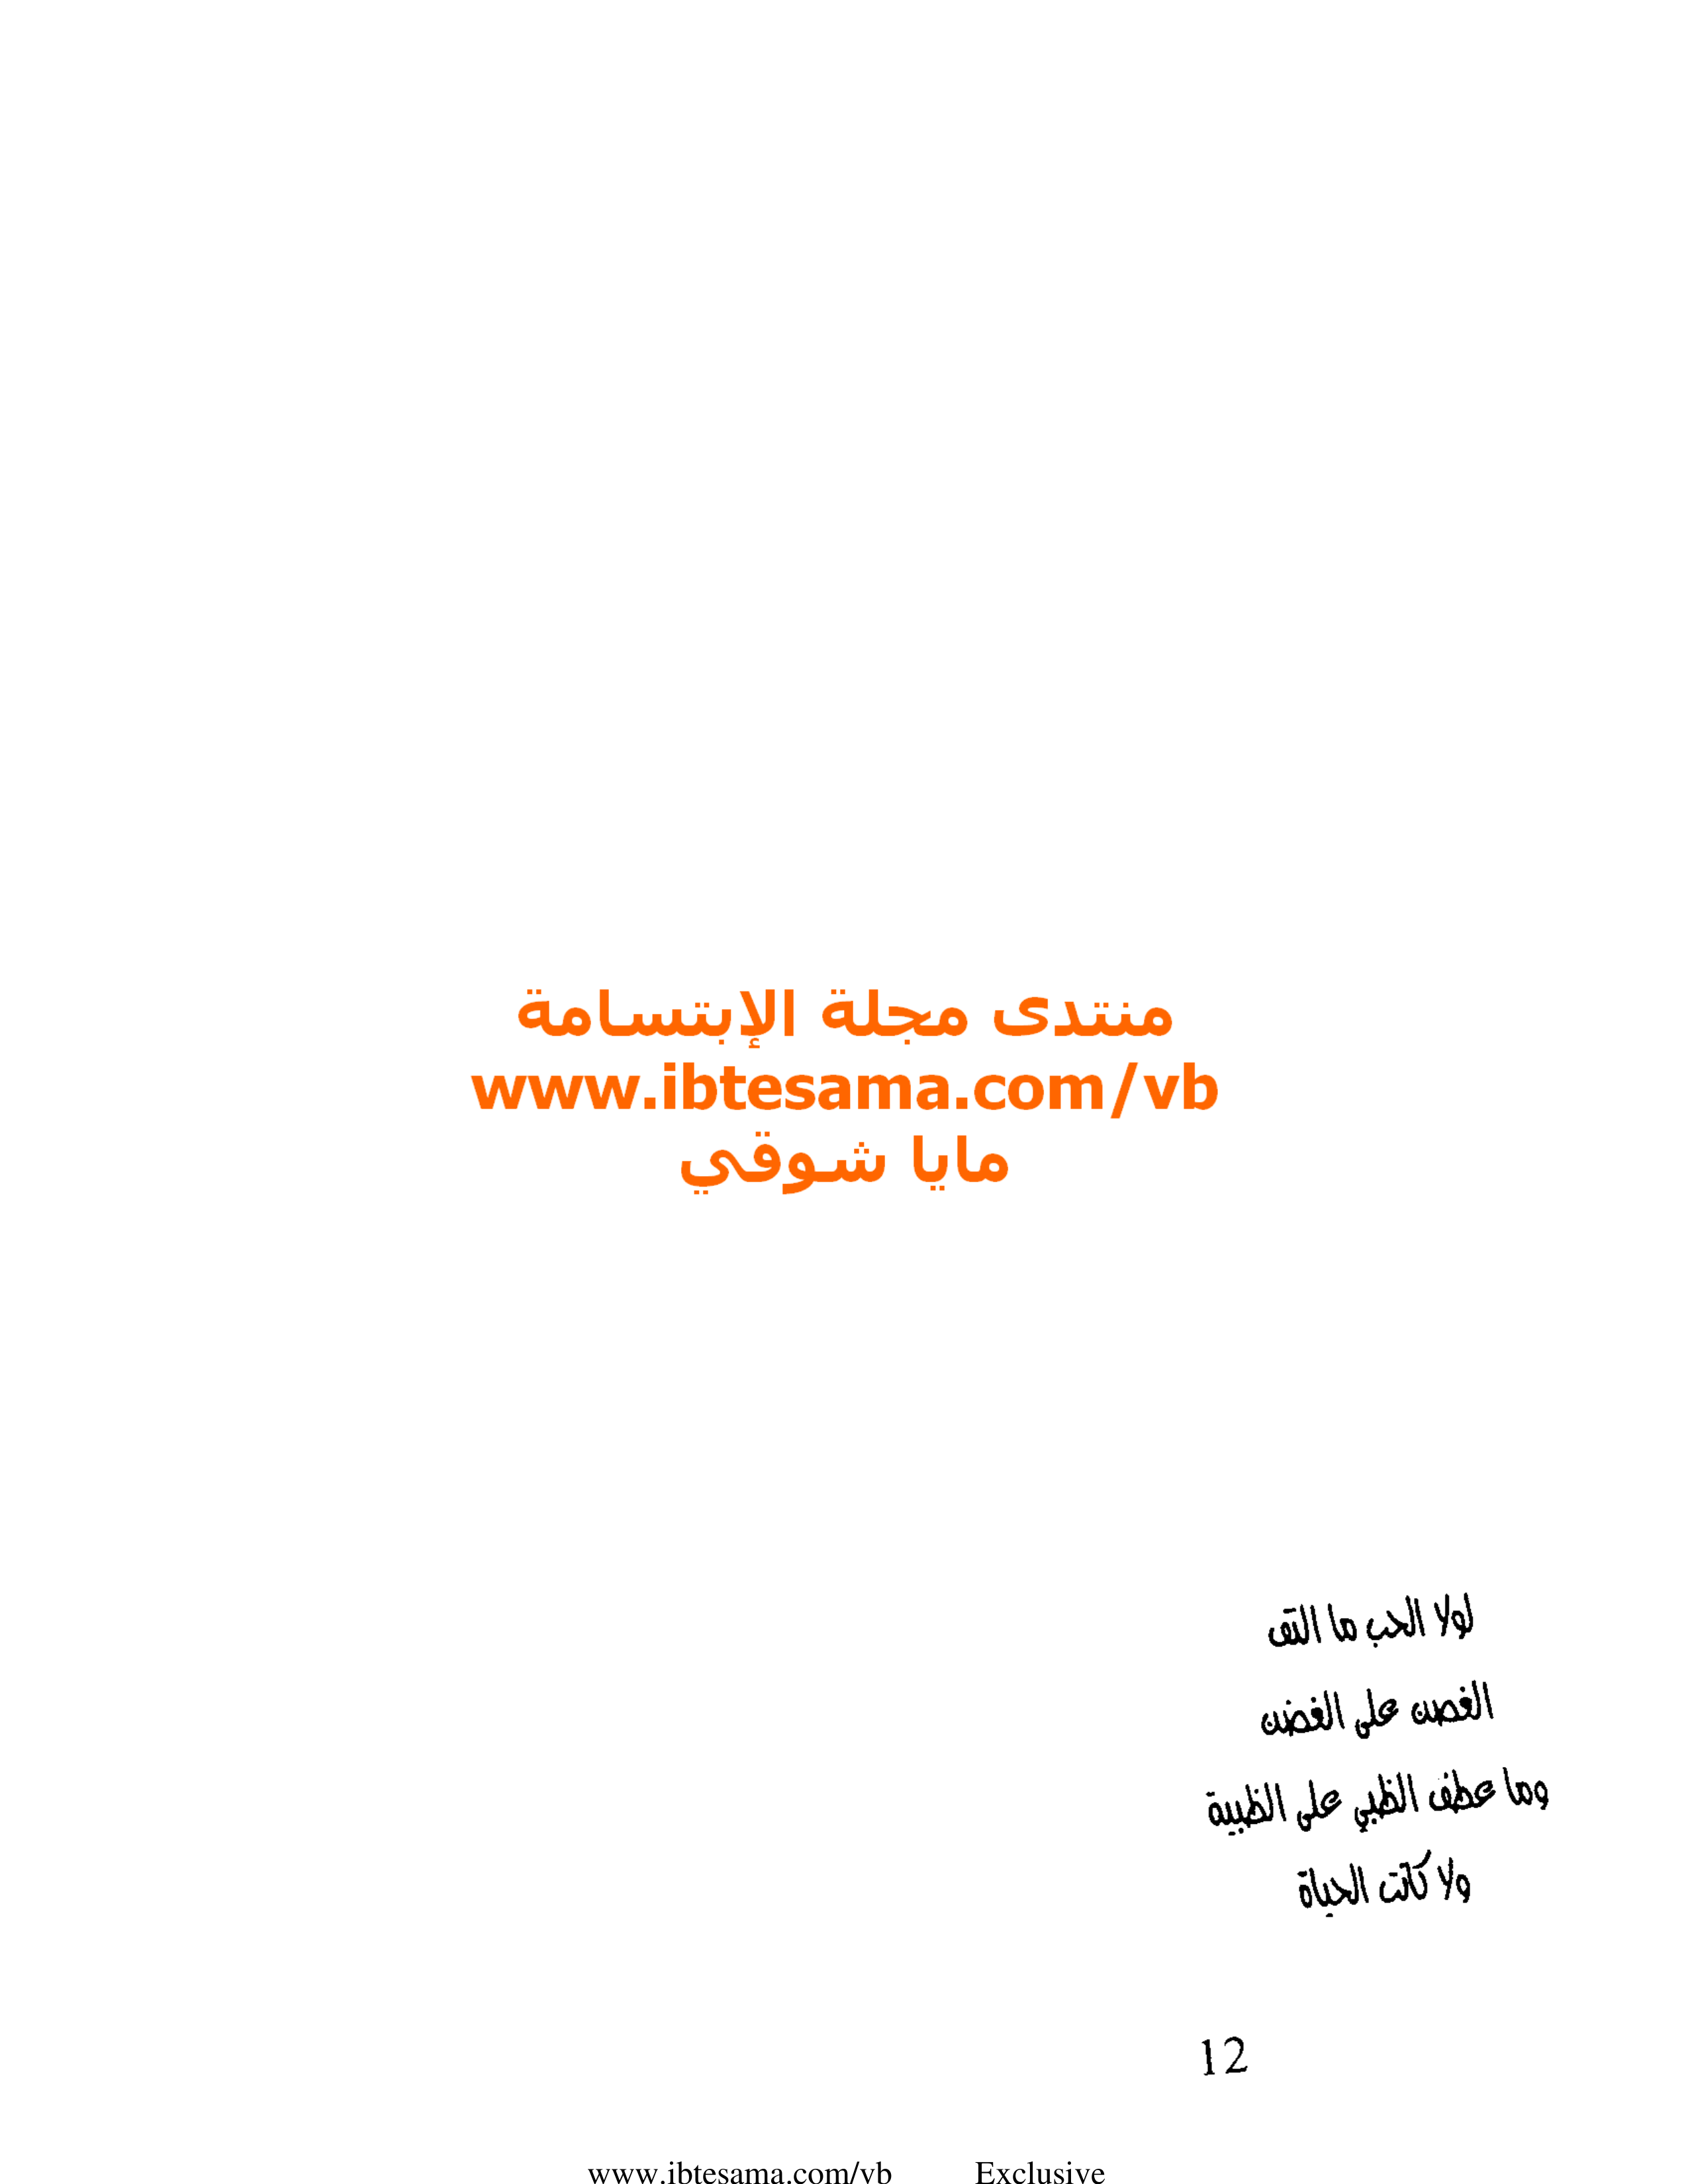 منتدى مجلة الإبتسامة
www.ibtesama.com/vb
مايا شوقي
لولا الحب ما التف
الغصن على الغصن
وما عطف الظبي على الظبية
ولا كانت الحياة
12
www.ibtesama.com/vb Exclusive